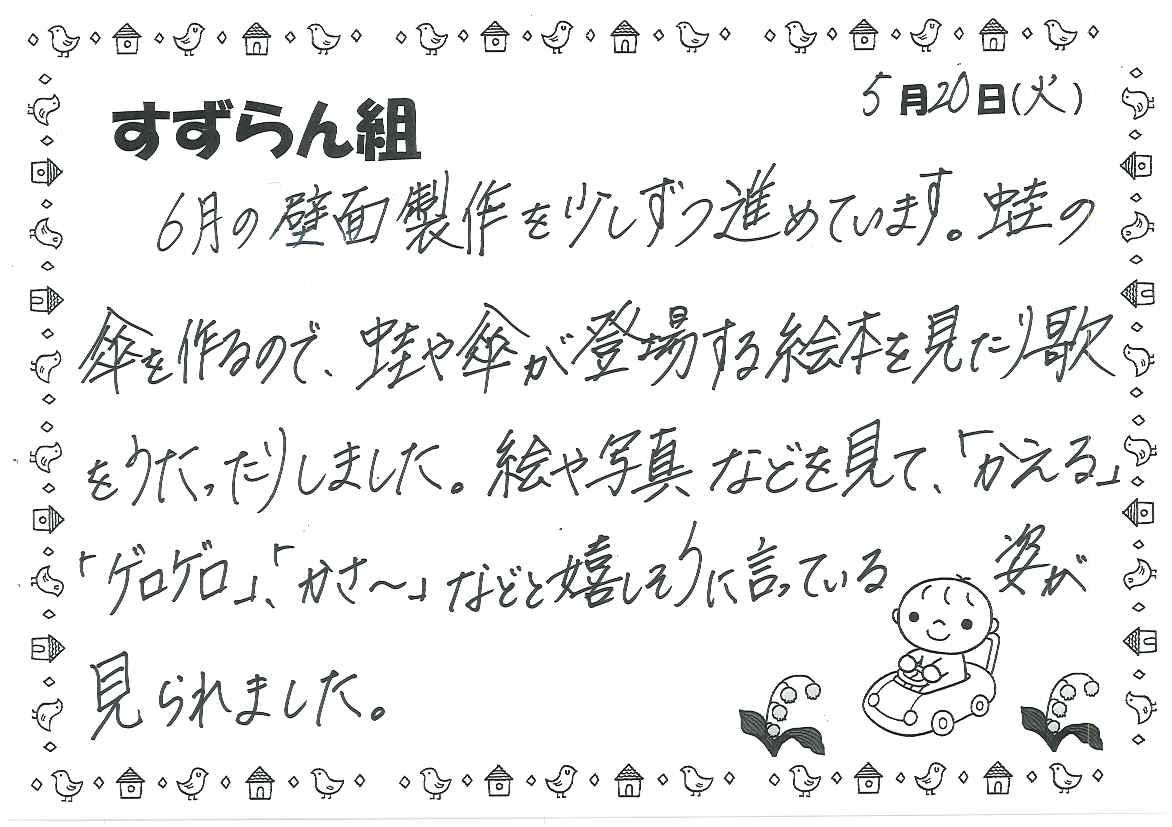 5月20日(火)
すずらん組
6月の壁面製作を少しずつ進めています。蛙の
傘を作るので、蛙や傘が登場する絵本を見たり歌
をうたったりしました。絵や写真などを見て、「かえる」
「ゲロゲロ」、「かさ〜」などと嬉しそうに言っている姿が
見られました。